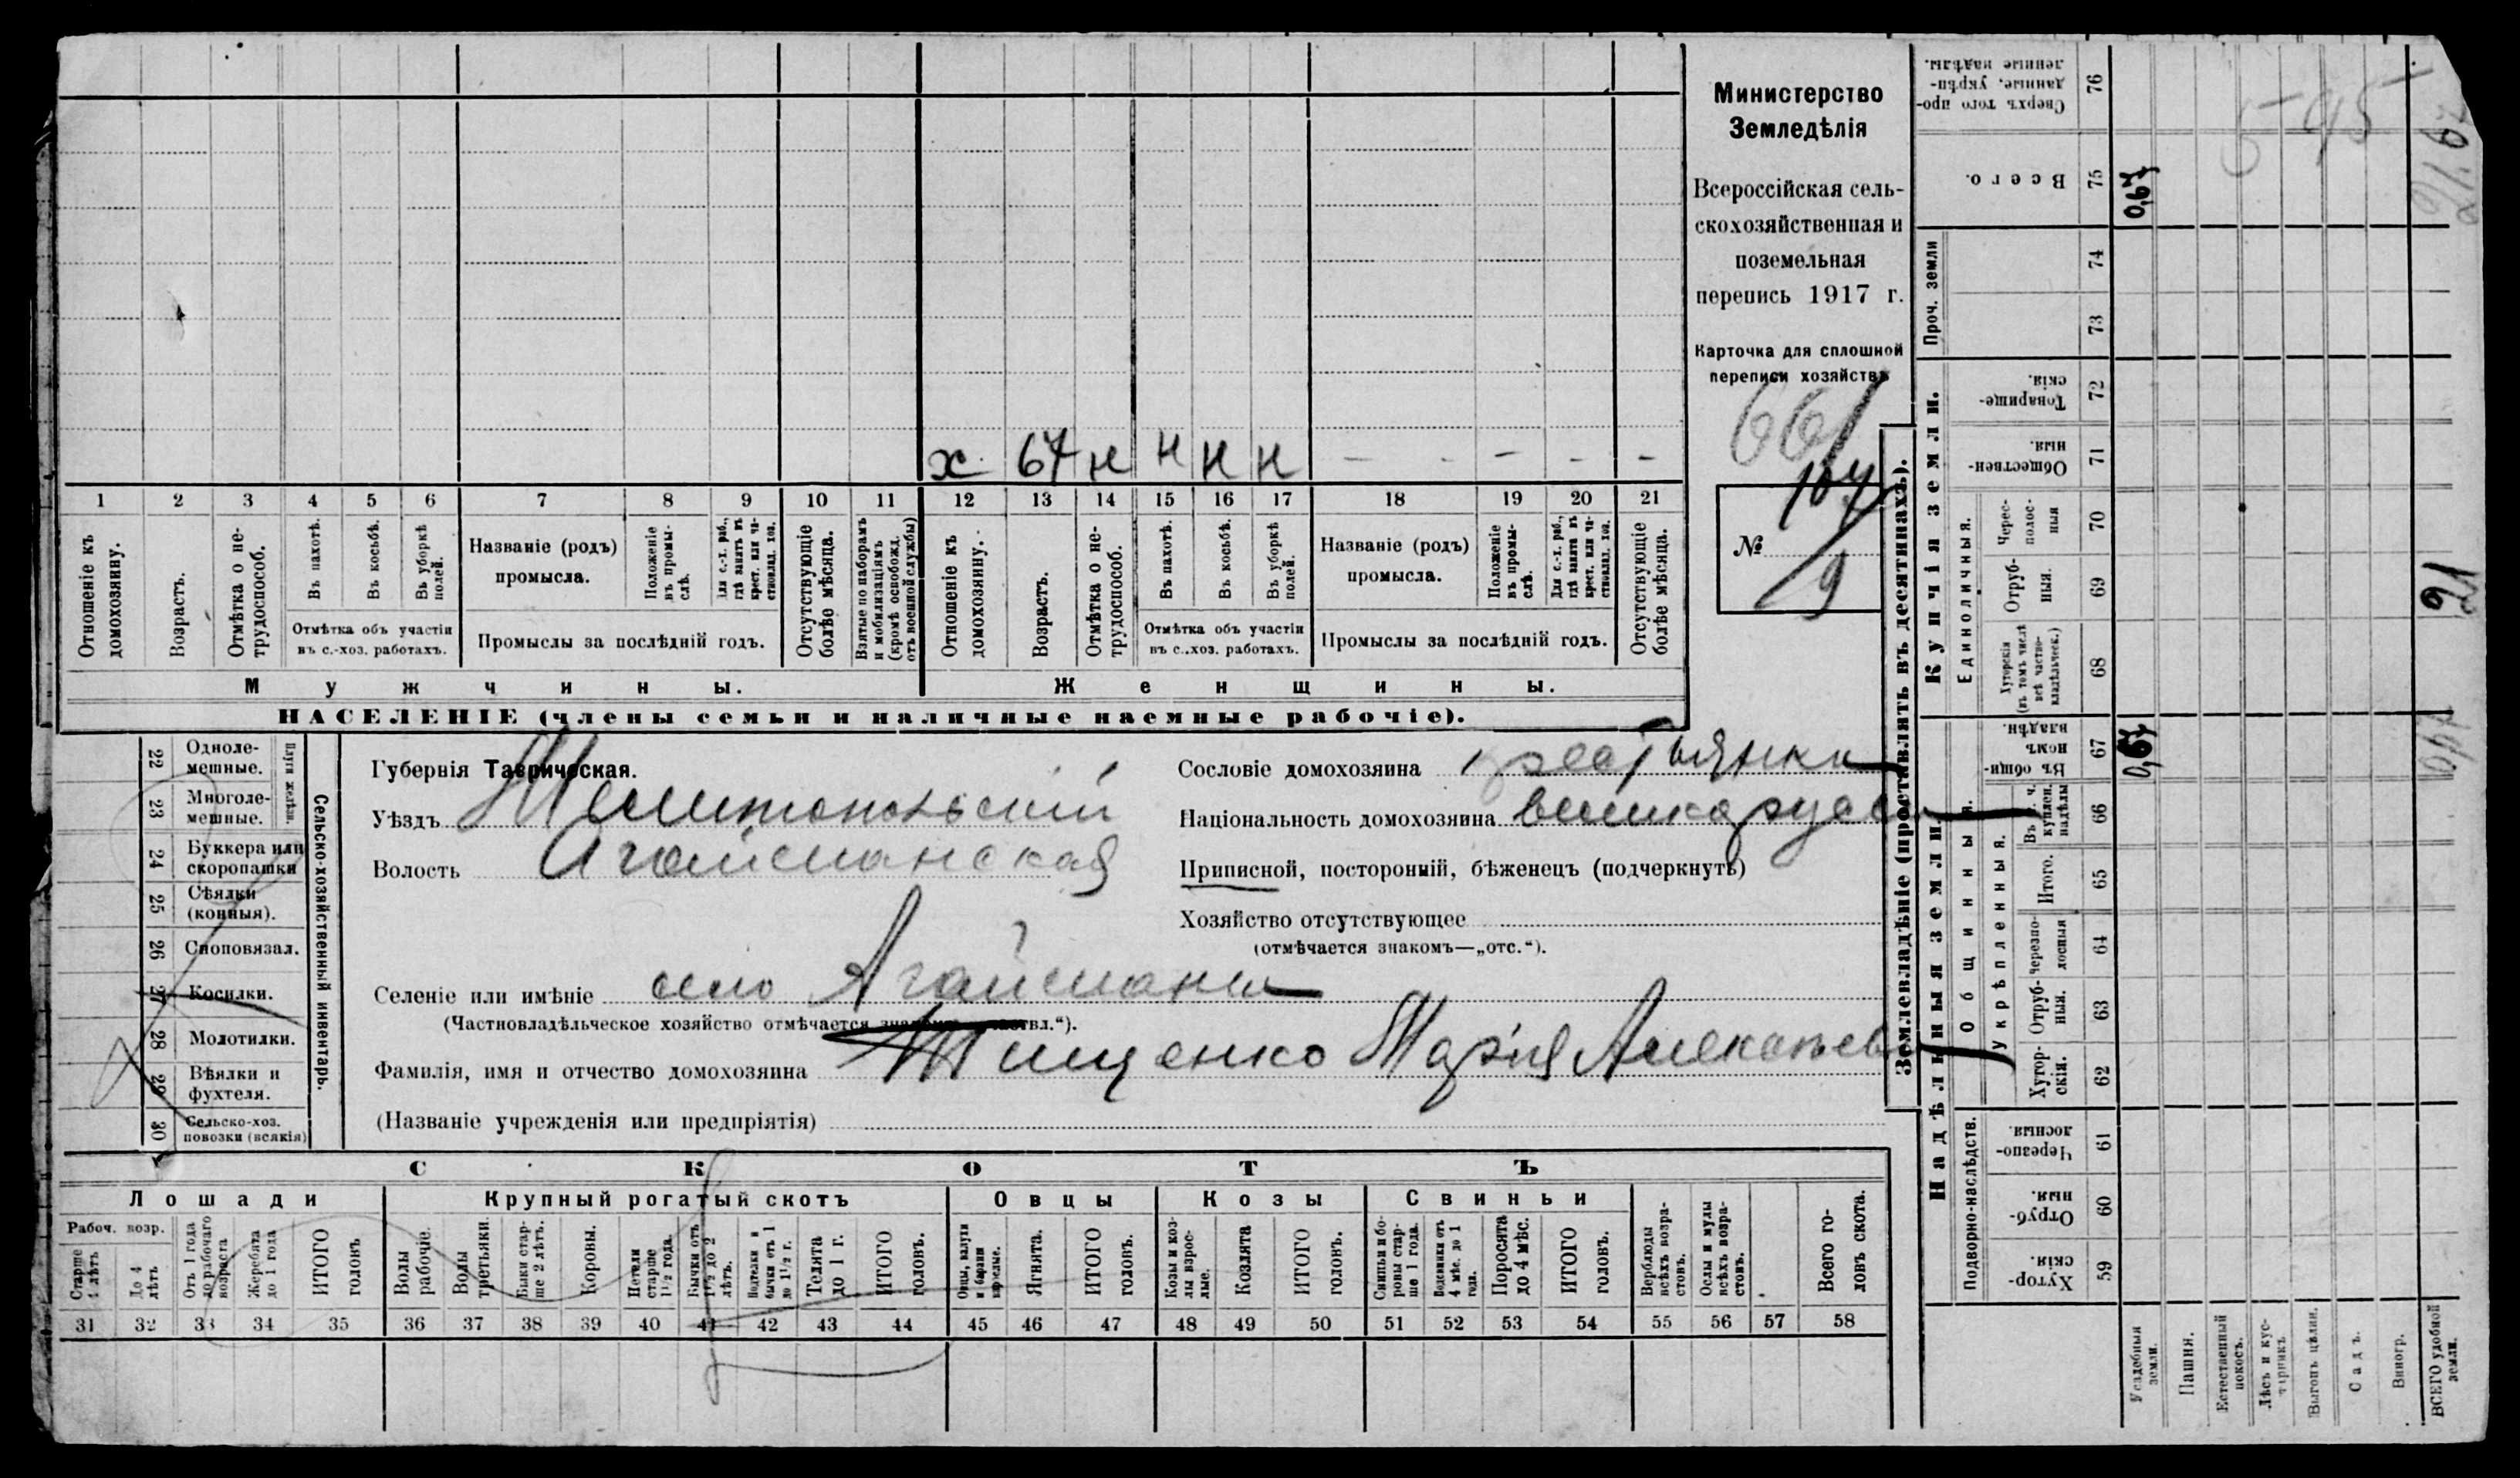 Министерство
Земледѣлія
Всероссійская сель-
скохозяйственная и
поземельная
перепись 1917 г.
Карточка для сплошной
переписи хозяйствъ
661
104
№
9
х 67 н н н н - - - - -
1 2 3 4 5 6 7 8 9 10 11 12 13 14 15 16 17 18 19 20 21
Отношеніе къ домохозяину.
Возрастъ.
Отмѣтка о не-трудоспособ.
Въ пахотѣ.
Въ косьбѣ.
Въ уборкѣ полей.
Отмѣтка объ участіи
въ с.-хоз. работахъ.
Названіе (родъ)
промысла.
Положеніе въ промы-слѣ.
Для с.-х. раб., гдѣ занятъ въ крест. или ча-стновлад. хоз.
Промыслы за послѣдній годъ.
Отсутствующіе болѣе мѣсяца.
Взятые по наборамъ и мобилизаціямъ (кромѣ освобожд. отъ военной службы)
Отношеніе къ домохозяину.
Возрастъ.
Отмѣтка о не-трудоспособ.
Въ пахотѣ.
Въ косьбѣ.
Въ уборкѣ полей.
Отмѣтка объ участіи
въ с.-хоз. работахъ.
Названіе (родъ)
промысла.
Положеніе въ промы-слѣ.
Для с.-х. раб., гдѣ занята въ крест. или ча-стновлад. хоз.
Промыслы за послѣдній годъ.
Отсутствующіе болѣе мѣсяца.
Мужчины.
Женщины.
НАСЕЛЕНІЕ (члены семьи и наличные наемные рабочіе).
Сельско-хозяйственный инвентарь.
Плуги желѣзн.
22 Одноле-мешные.
23 Многоле-мешные.
24 Буккера или скоропашки
25 Сѣялки (конныя).
26 Сноповязал.
27 Косилки.
28 Молотилки.
29 Вѣялки и фухтеля.
30 Сельско-хоз. повозки (всякія)
Губернія Таврическая.
Уѣздъ Мелитопольскій
Волость Агайманская
Сословіе домохозяина крестьянка
Національность домохозяина
Приписной, посторонній, бѣженецъ (подчеркнуть)
Хозяйство отсутствующее
(отмѣчается знакомъ—„отс.“).
Селеніе или имѣніе село Агайманы
(Частновладѣльческое хозяйство отмѣчается
Фамилія, имя и отчество домохозяина Тищенко Марія
(Названіе учрежденія или предпріятія)
СКОТЪ
Лошади
Крупный рогатый скотъ
Овцы
Козы
Свиньи
Рабоч. возр.
Старше 4 лѣтъ
До 4 лѣтъ
Отъ 1 года до рабочаго возраста
Жеребята до 1 года
ИТОГО головъ
Волы рабочіе.
Волы третьяки.
Быки стар-ше 2 лѣтъ.
Коровы.
Нетели старше 1½ года.
Бычки отъ 1½ до 2 лѣтъ.
Подтелки и бычки отъ 1 до 1½ г.
Телята до 1 г.
ИТОГО головъ.
Овцы, валухи и бараны взрослые.
Ягнята.
ИТОГО головъ.
Козы и коз-лы взрос-лые.
Козлята
ИТОГО головъ.
Свиньи и бо-ровы стар-ше 1 года.
Подсвинки отъ 4 мѣс. до 1 года.
Поросята до 4 мѣс.
ИТОГО головъ.
Верблюды всѣхъ возра-стовъ.
Ослы и мулы всѣхъ возра-стовъ.
Всего го-ловъ скота.
31 32 33 34 35 36 37 38 39 40 41 42 43 44 45 46 47 48 49 50 51 52 53 54 55 56 57 58
Землевладѣніе (проставлять въ десятинахъ).
Надѣльныя земли.
Купчія земли.
Проч. земли
Подворно-наслѣдств.
Общинныя.
Укрѣпленныя.
Единоличныя.
76 Сверхъ того про-данные, укрѣп-ленные надѣлы.
75 Всего. 0,67
74
73
72 Товарище-скія.
71 Обществен-ныя.
70 Черес-полос-ныя
69 Отруб-ныя.
68 Хуторскія (въ томъ числѣ всѣ частно-владѣльческ.)
67 Въ общи-номъ владѣн. 0,67
66 Въ т. ч. куплен. надѣлы
65 Итого.
64 черезпо-лосныя
63 Отруб-ныя.
62 Хутор-скія.
61 Черезпо-лосныя.
60 Отруб-ныя.
59 Хутор-скія.
Усадебныя земли.
Пашня.
Естественный покосъ.
Лѣсъ и кус-тарникъ
Выгонъ цѣлин.
Садъ.
Виногр.
ВСЕГО удобной земли.